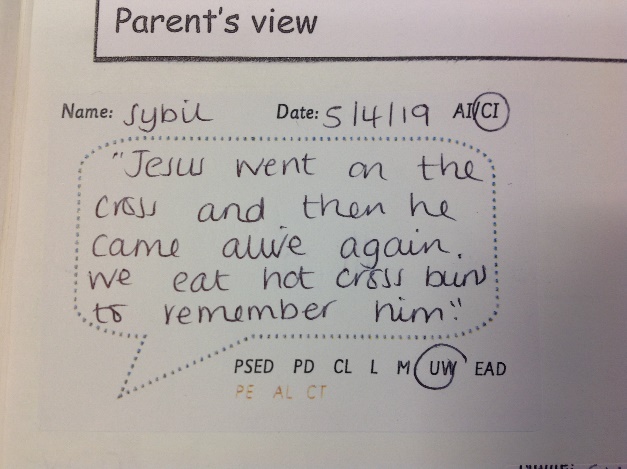 Parent's view
Name: Sybil Date: 5/4/19 AI/CI
"Jesus went on the
cross and then he
came alive again.
We eat hot cross buns
to remember him."
PSED PD CL L M UW EAD
PE AL CT